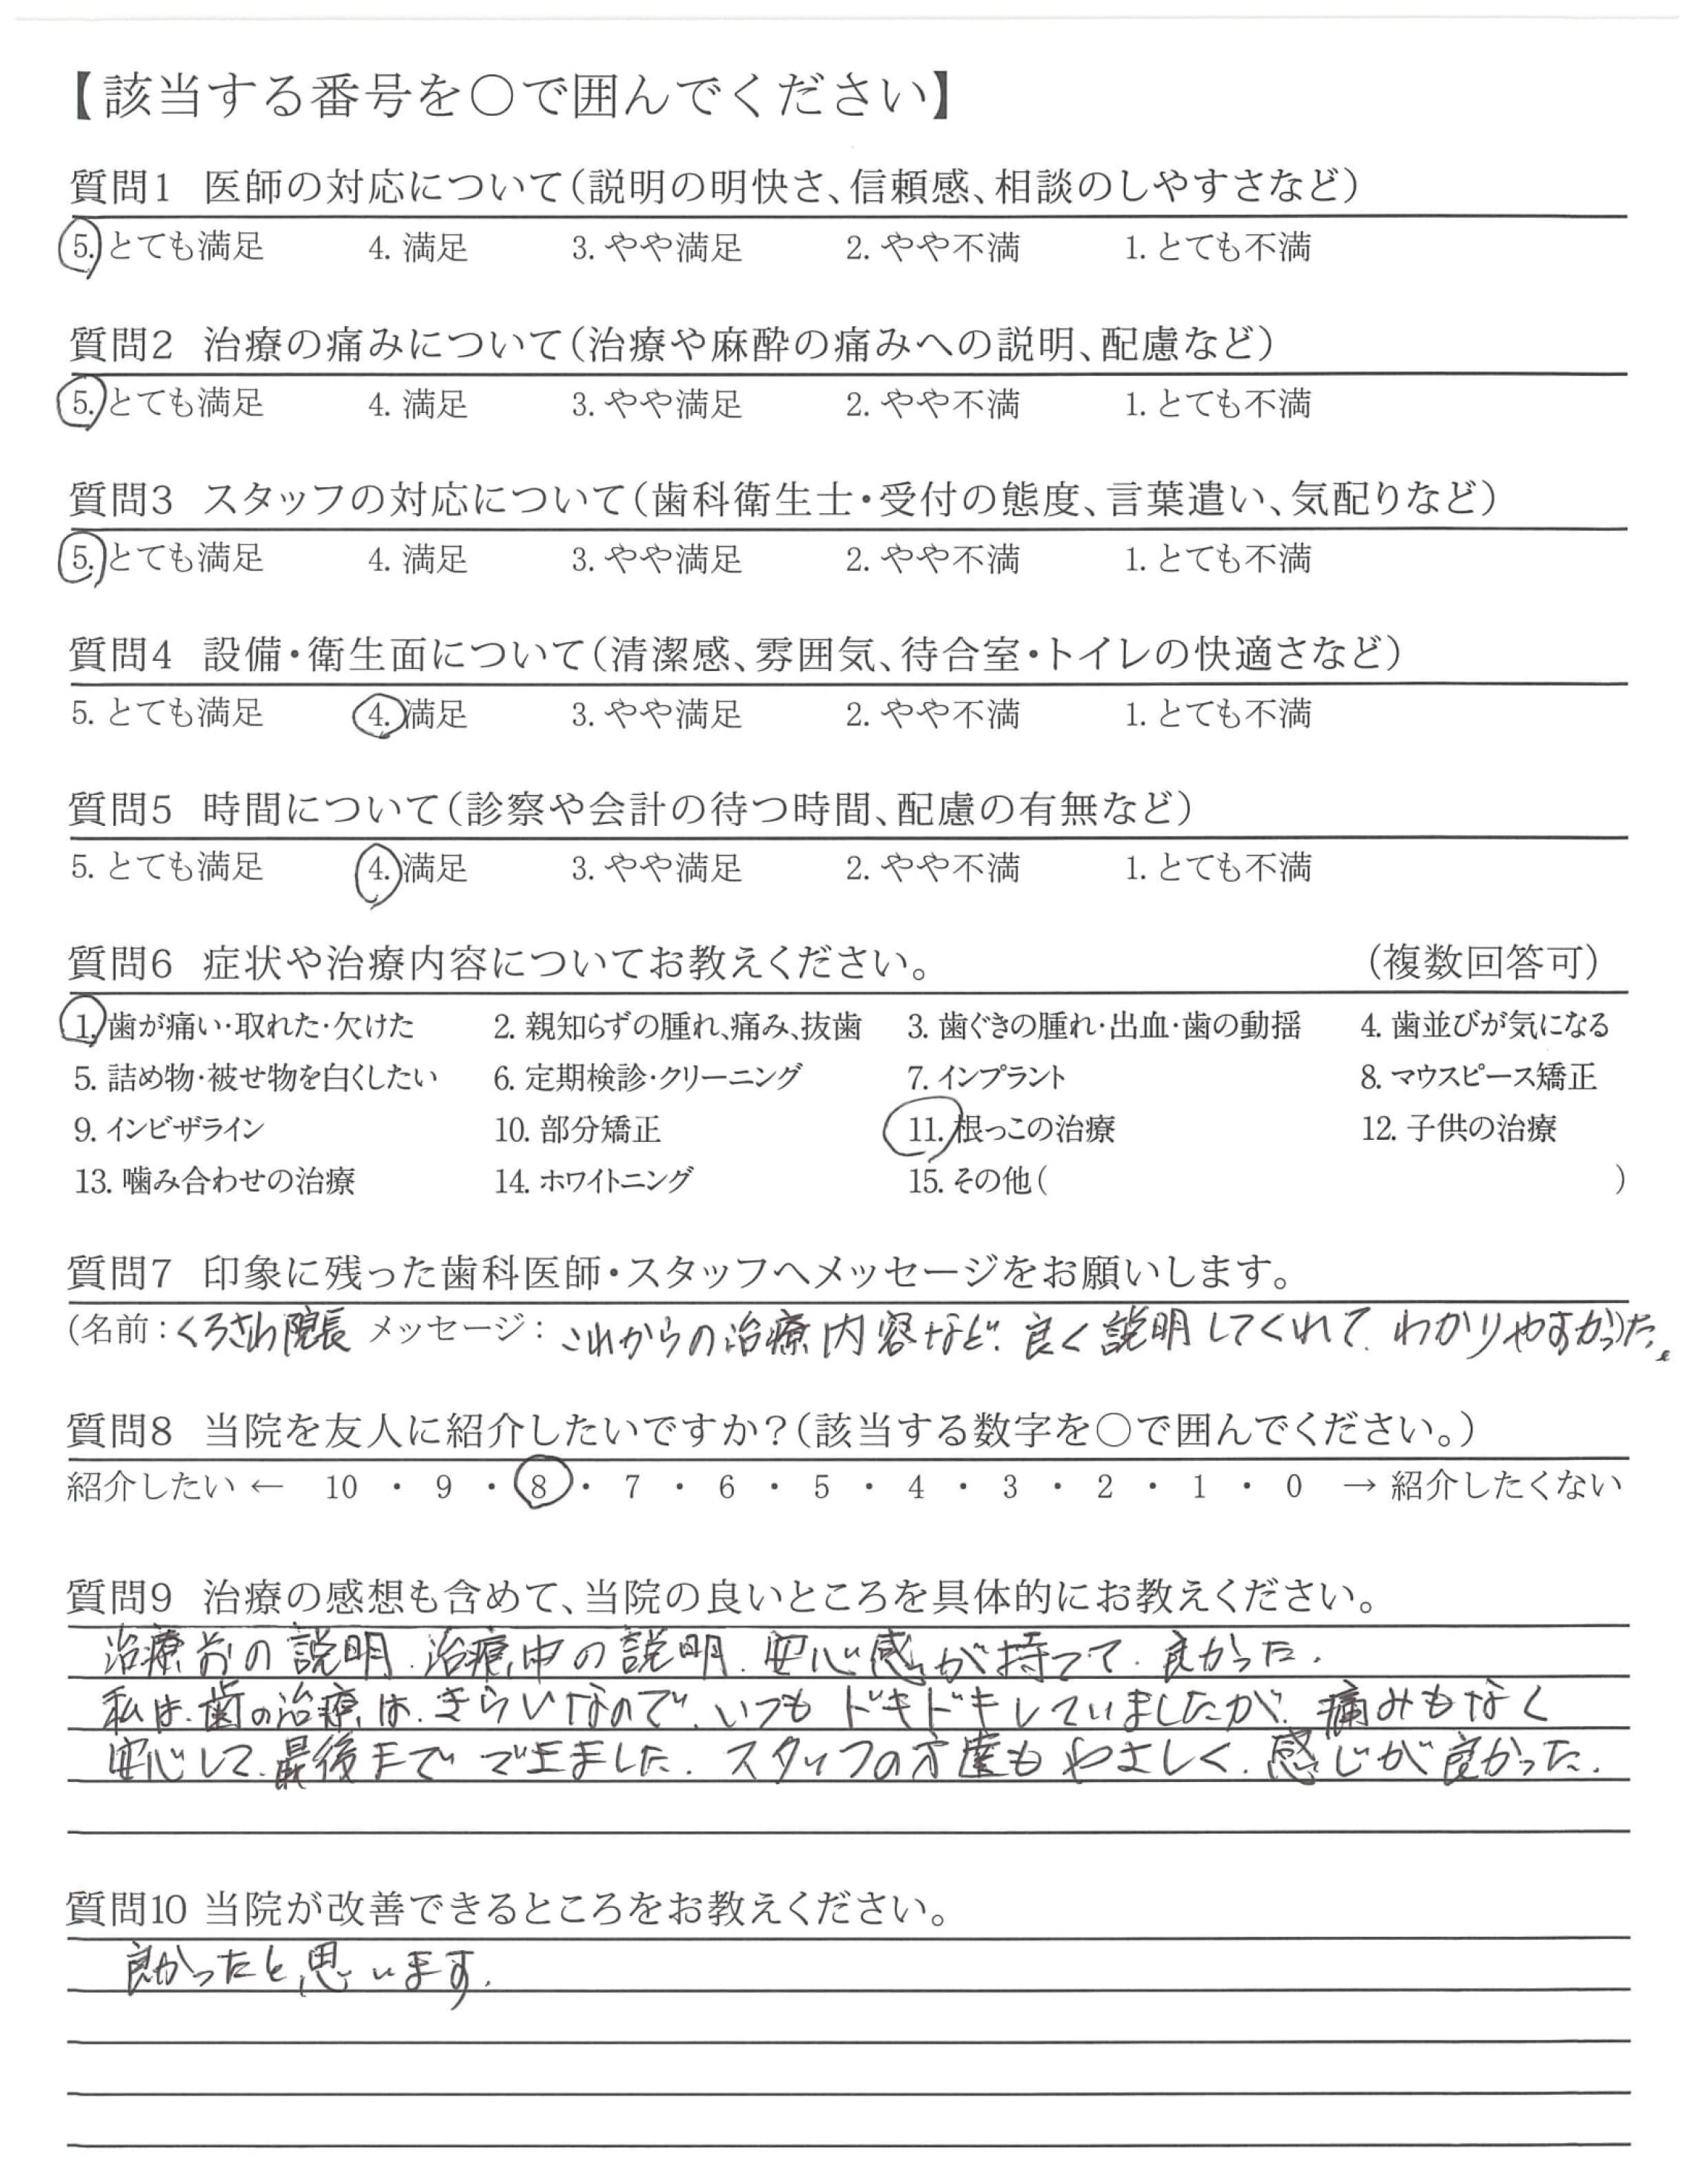 【該当する番号を○で囲んでください】
質問1 医師の対応について(説明の明快さ、信頼感、相談のしやすさなど)
5. とても満足 4. 満足 3. やや満足 2. やや不満 1. とても不満
質問2 治療の痛みについて(治療や麻酔の痛みへの説明、配慮など)
5. とても満足 4. 満足 3. やや満足 2. やや不満 1. とても不満
質問3 スタッフの対応について(歯科衛生士・受付の態度、言葉遣い、気配りなど)
5. とても満足 4. 満足 3. やや満足 2. やや不満 1. とても不満
質問4 設備・衛生面について(清潔感、雰囲気、待合室・トイレの快適さなど)
5. とても満足 4. 満足 3. やや満足 2. やや不満 1. とても不満
質問5 時間について(診察や会計の待つ時間、配慮の有無など)
5. とても満足 4. 満足 3. やや満足 2. やや不満 1. とても不満
質問6 症状や治療内容についてお教えください。 (複数回答可)
1. 歯が痛い・取れた・欠けた 2. 親知らずの腫れ、痛み、抜歯 3. 歯ぐきの腫れ・出血・歯の動揺 4. 歯並びが気になる
5. 詰め物・被せ物を白くしたい 6. 定期検診・クリーニング 7. インプラント 8. マウスピース矯正
9. インビザライン 10. 部分矯正 11. 根っこの治療 12. 子供の治療
13. 噛み合わせの治療 14. ホワイトニング 15. その他( )
質問7 印象に残った歯科医師・スタッフへメッセージをお願いします。
(名前:くろさわ院長 メッセージ: これからの治療内容など、良く説明してくれて、わかりやすかった。
質問8 当院を友人に紹介したいですか?(該当する数字を○で囲んでください。)
紹介したい ← 10 ・ 9 ・ 8 ・ 7 ・ 6 ・ 5 ・ 4 ・ 3 ・ 2 ・ 1 ・ 0 → 紹介したくない
質問9 治療の感想も含めて、当院の良いところを具体的にお教えください。
治療前の説明、治療中の説明、安心感が持てて、良かった。
私は、歯の治療は、きらいなので、いつもドキドキしていましたが、痛みもなく
安心して、最後まで できました。スタッフの方達もやさしく、感じが良かった。
質問10 当院が改善できるところをお教えください。
良かったと思います。